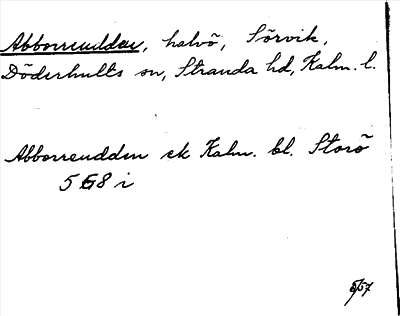 Abborreudden, halvö, Sörvik,
Döderhults sn, Stranda hd, Kalm. l.
Abborreudden ek Kalm. bl. Storö
5 G 8 i